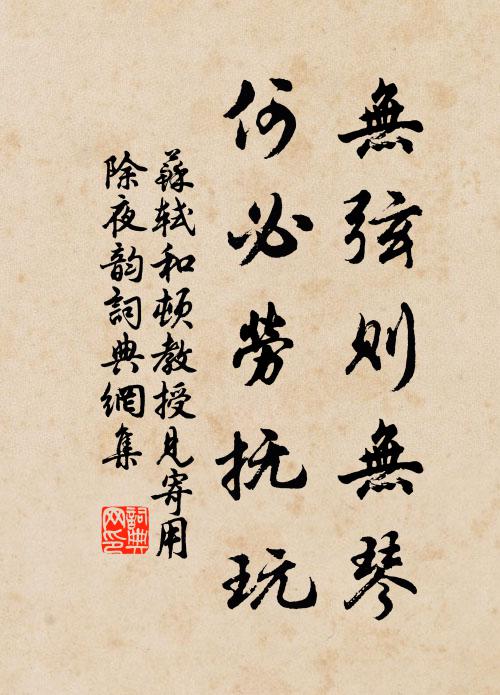 無弦則無琴
何必勞抚玩
蘇軾和頓教授見寄用
除夜韵詞典網集
詞典
网印